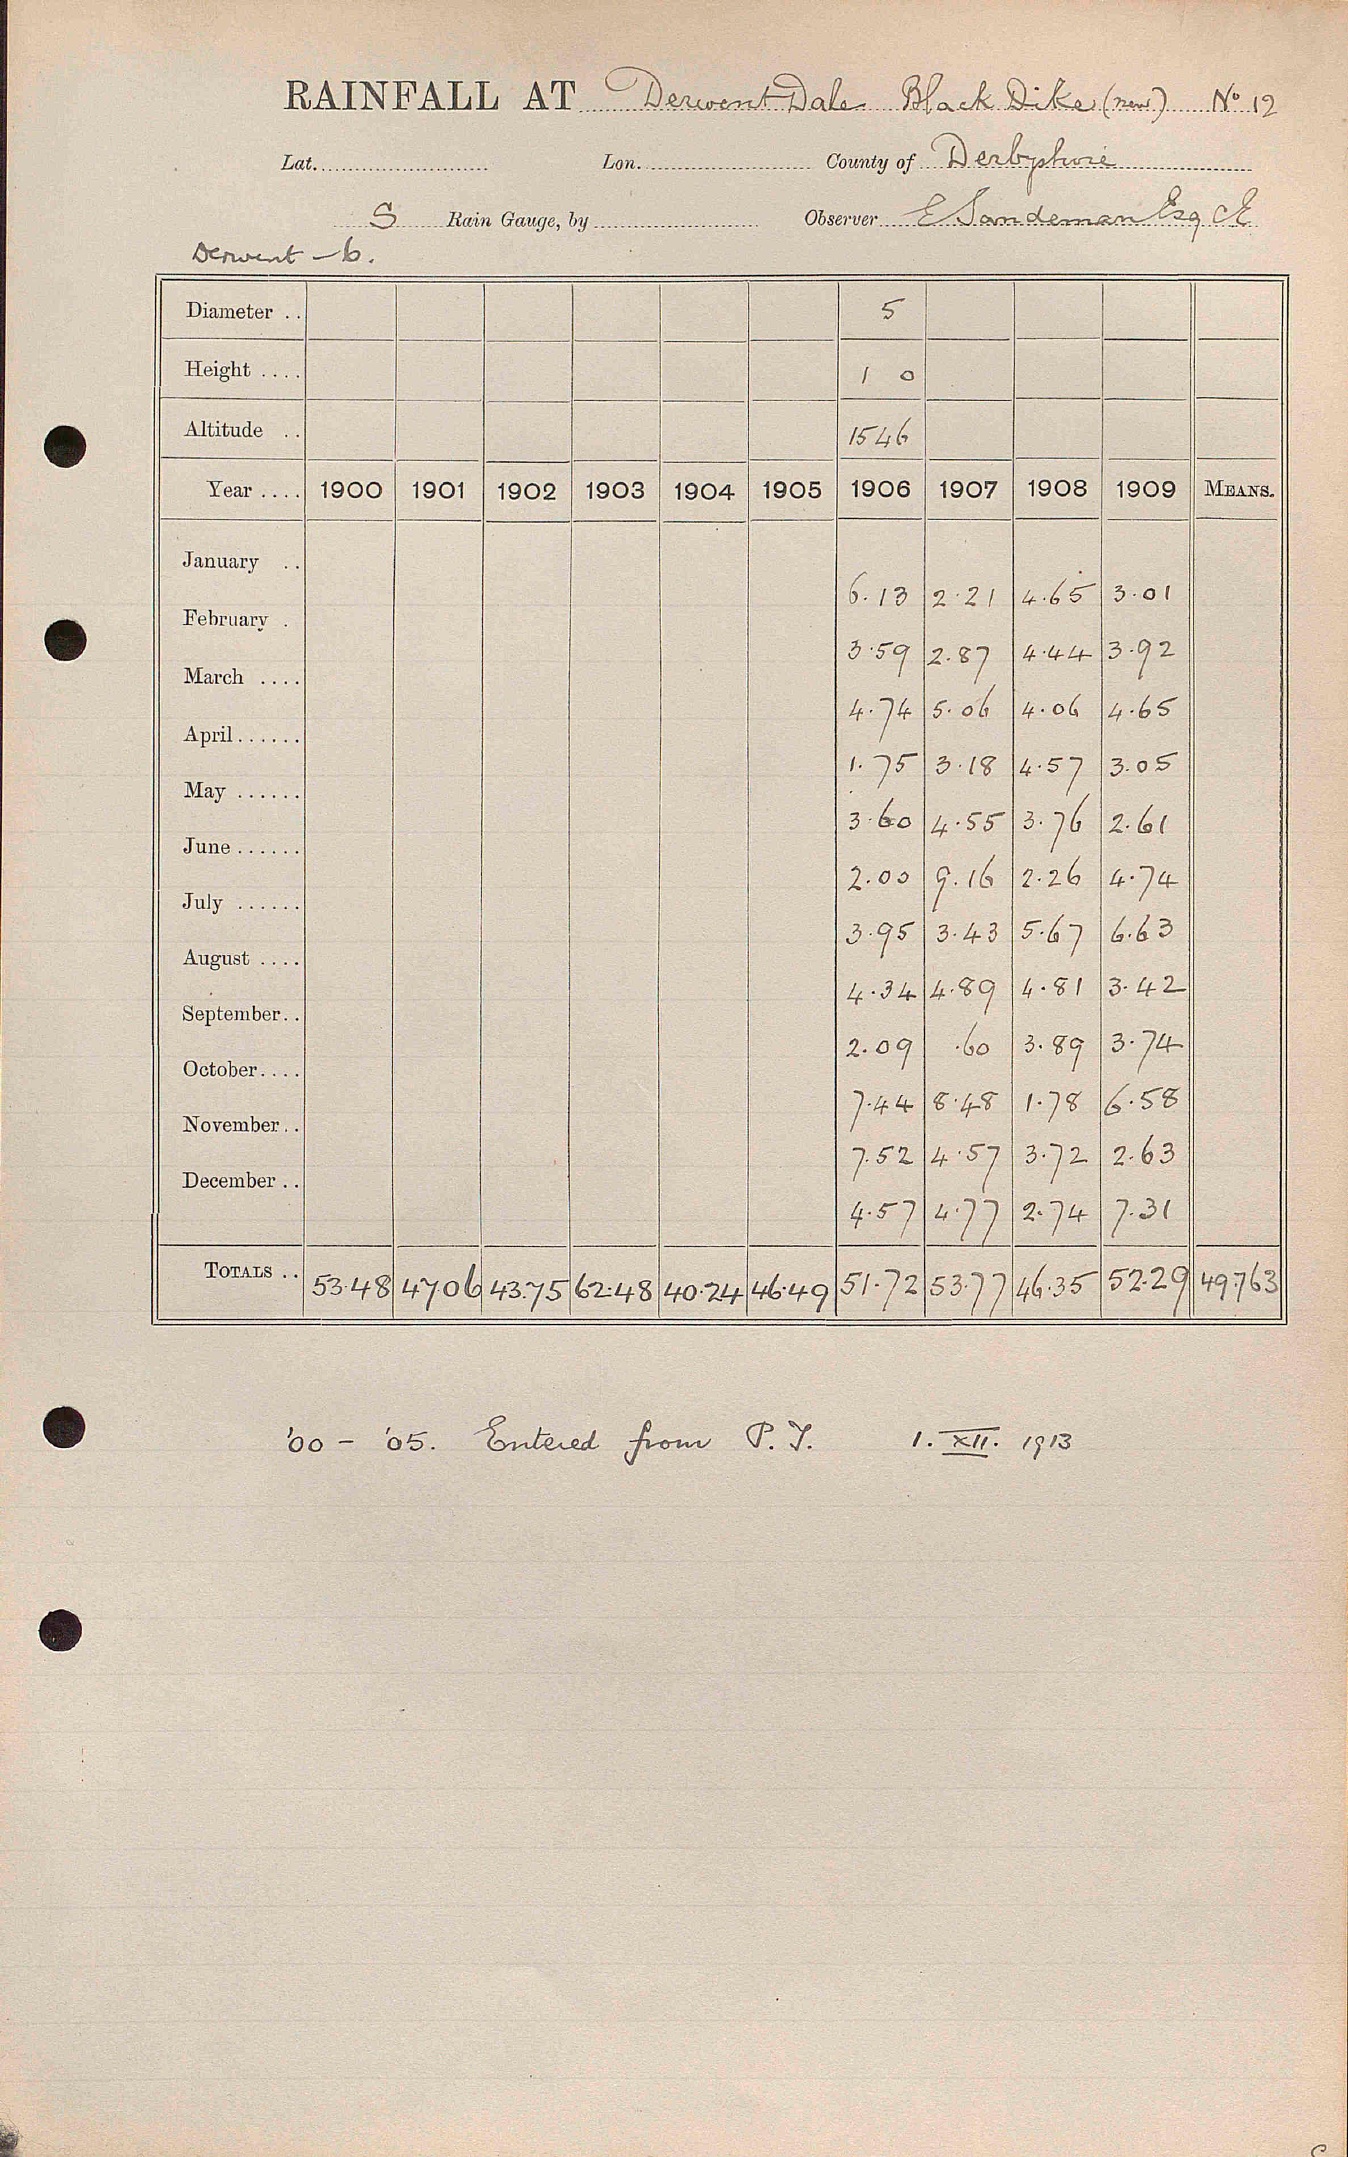 RAINFALL AT Derwent Dale Black Dike (new) No 12
Lat. Lon. County of Derbyshire
S Rain Gauge, by Observer E Sandeman Esq CE
Derwent - b.
Diameter .. 5
Height .... 1 0
Altitude .. 1546
Year .... 1900 1901 1902 1903 1904 1905 1906 1907 1908 1909 MEANS.
January .. 6.13 2.21 4.65 3.01
February . 3.59 2.87 4.44 3.92
March .... 4.74 5.06 4.06 4.65
April ...... 1.75 3.18 4.57 3.05
May ...... 3.60 4.55 3.76 2.61
June ...... 2.00 9.16 2.26 4.74
July ...... 3.95 3.43 5.67 6.63
August .... 4.34 4.89 4.81 3.42
September .. 2.09 .60 3.89 3.74
October .... 7.44 8.48 1.78 6.58
November .. 7.52 4.57 3.72 2.63
December .. 4.57 4.77 2.74 7.31
TOTALS .. 53.48 47.06 43.75 62.48 40.24 46.49 51.72 53.77 46.35 52.29 49.763
'00 - '05. Entered from P.T. 1. XII. 1913